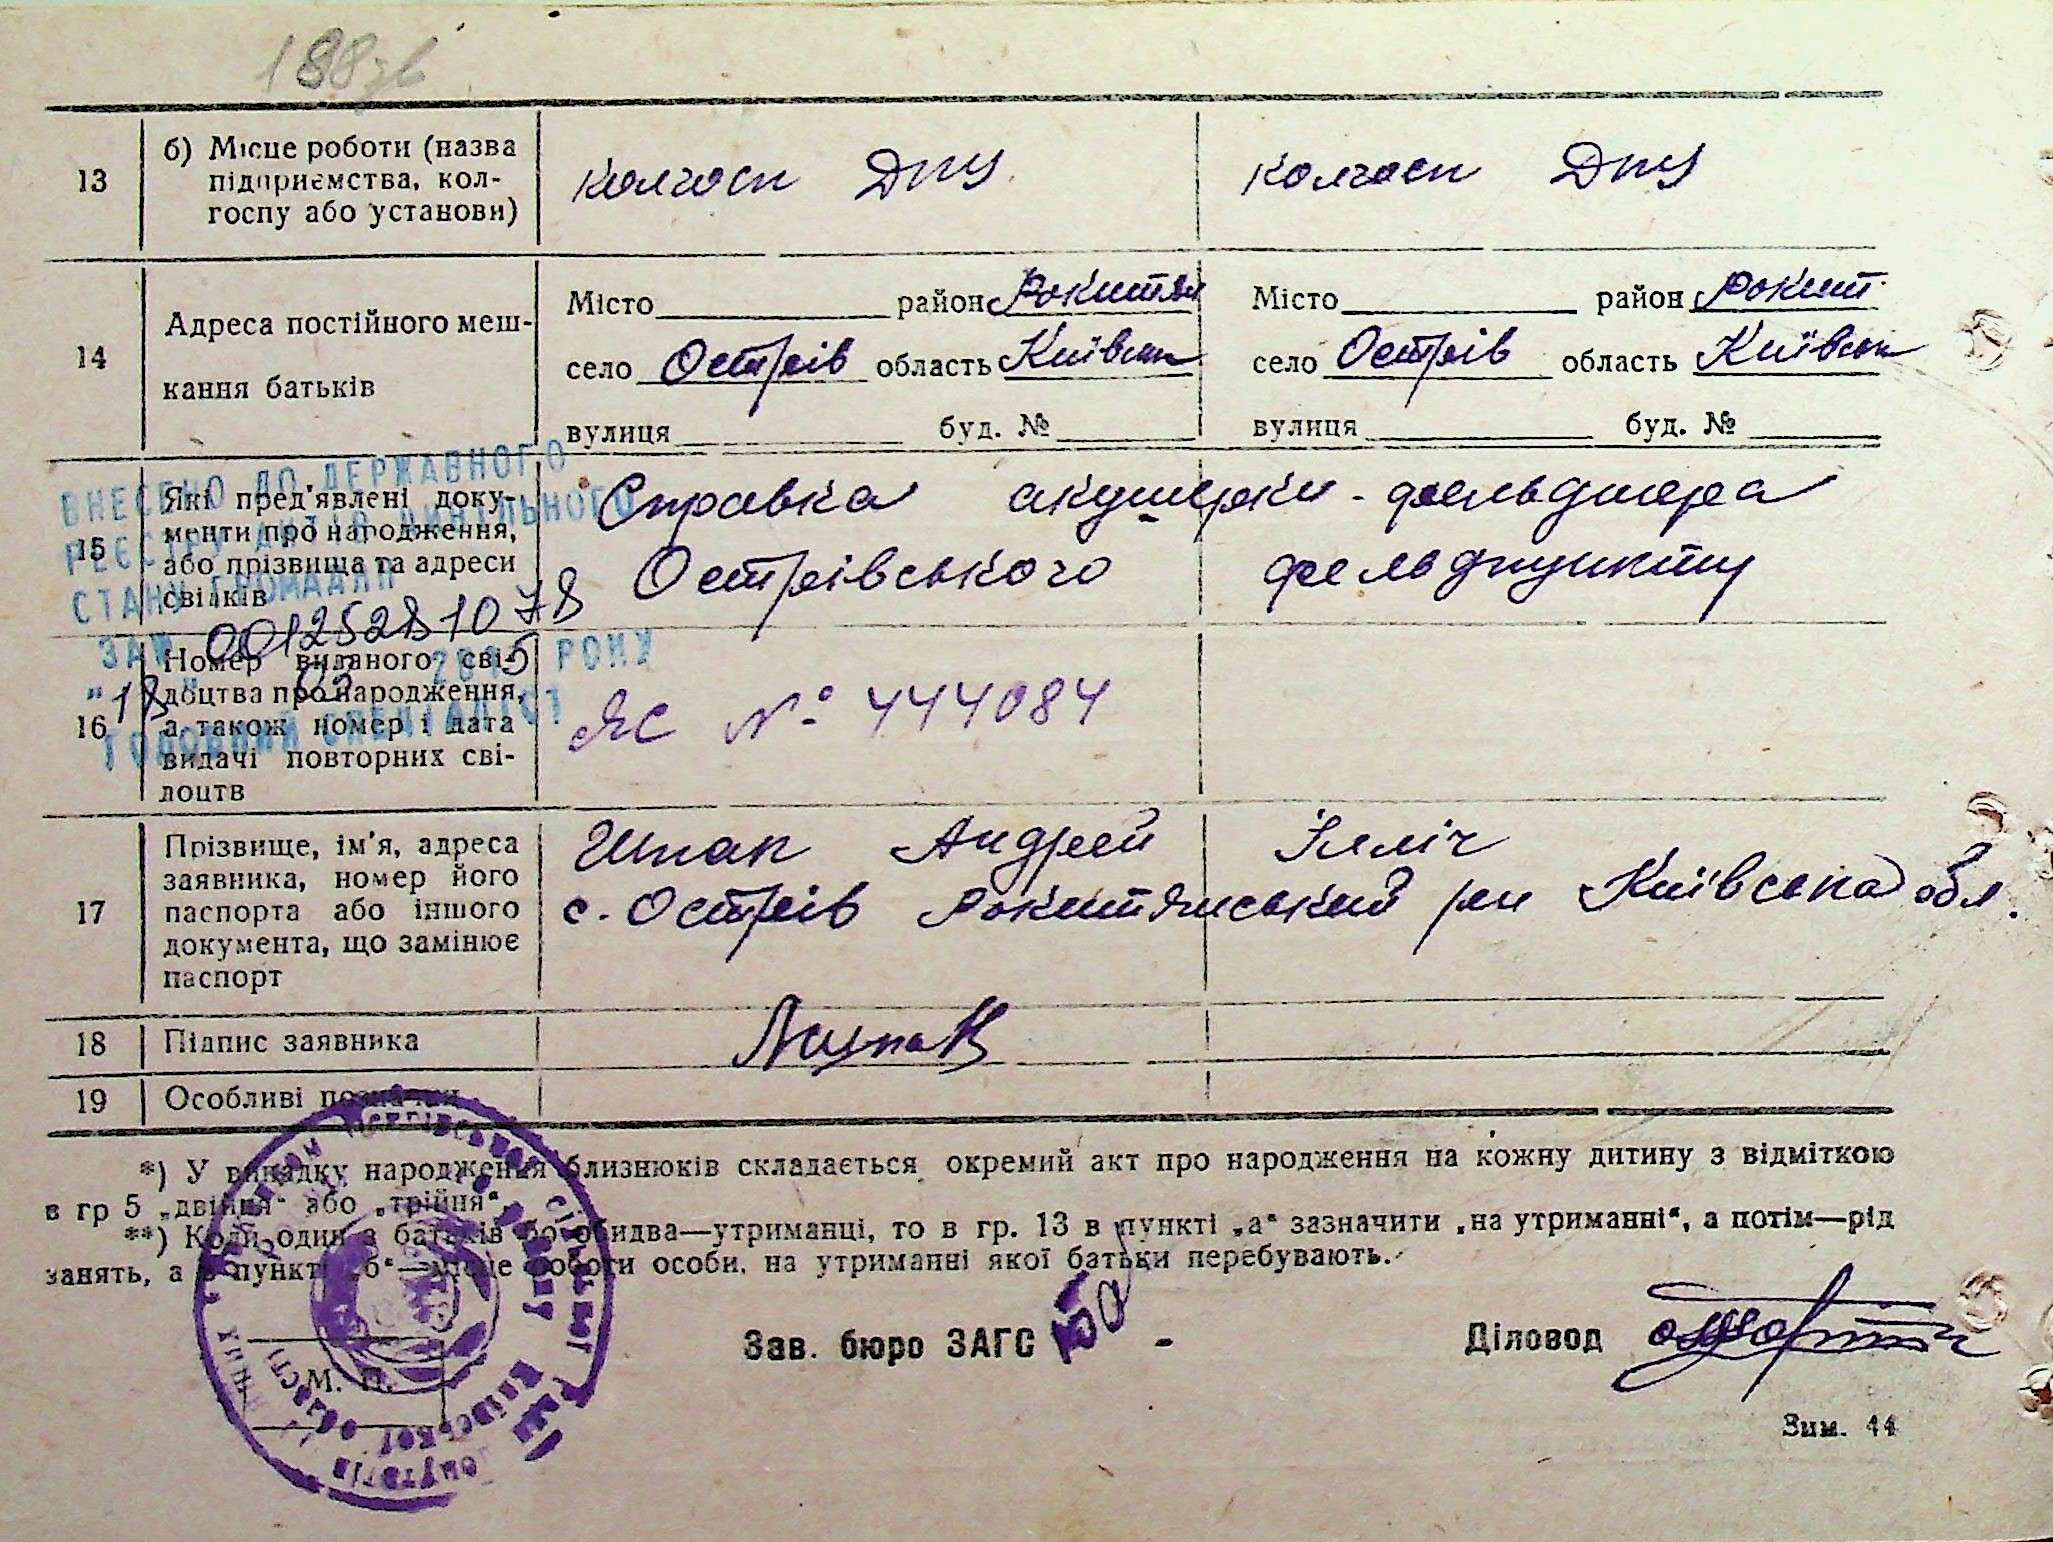 188 зв
13
б) Місце роботи (назва
підприємства, кол-
госпу або установи)
колгосп ДПУ
колгосп ДПУ
14
Адреса постійного меш-
кання батьків
Місто район Рокитян
село Острів область Київськ
вулиця буд. №
Місто район Рокит.
село Острів область Київськ
вулиця буд. №
15
Які пред'явлені доку-
менти про народження,
або прізвища та адреси
свідків
Справка акушерки-фельдшера
Острівського фельдпункту
ВНЕСЕНО ДО ДЕРЖАВНОГО
РЕЄСТРУ АКТІВ ЦИВІЛЬНОГО
СТАНУ ГРОМАДЯН
ЗА № 00125281078
"18" 03 2015 РОКУ
ГОЛОВНИЙ СПЕЦІАЛІСТ
16
Номер виданого сві-
доцтва про народження,
а також номер і дата
видачі повторних сві-
доцтв
ЯС № 444084
17
Прізвище, ім'я, адреса
заявника, номер його
паспорта або іншого
документа, що замінює
паспорт
Шпак Андрей Ілліч
с. Острів Рокитянський р-н Київська обл.
18
Підпис заявника
19
Особливі позначки
*) У випадку народження близнюків складається окремий акт про народження на кожну дитину з відміткою
в гр 5 „двійня" або „трійня"
**) Коли один з батьків або обидва—утриманці, то в гр. 13 в пункті „а" зазначити „на утриманні", а потім—рід
занять, а в пункті „б"—місце роботи особи, на утриманні якої батьки перебувають.
М. П.
Зав. бюро ЗАГС
Діловод
Зам. 44